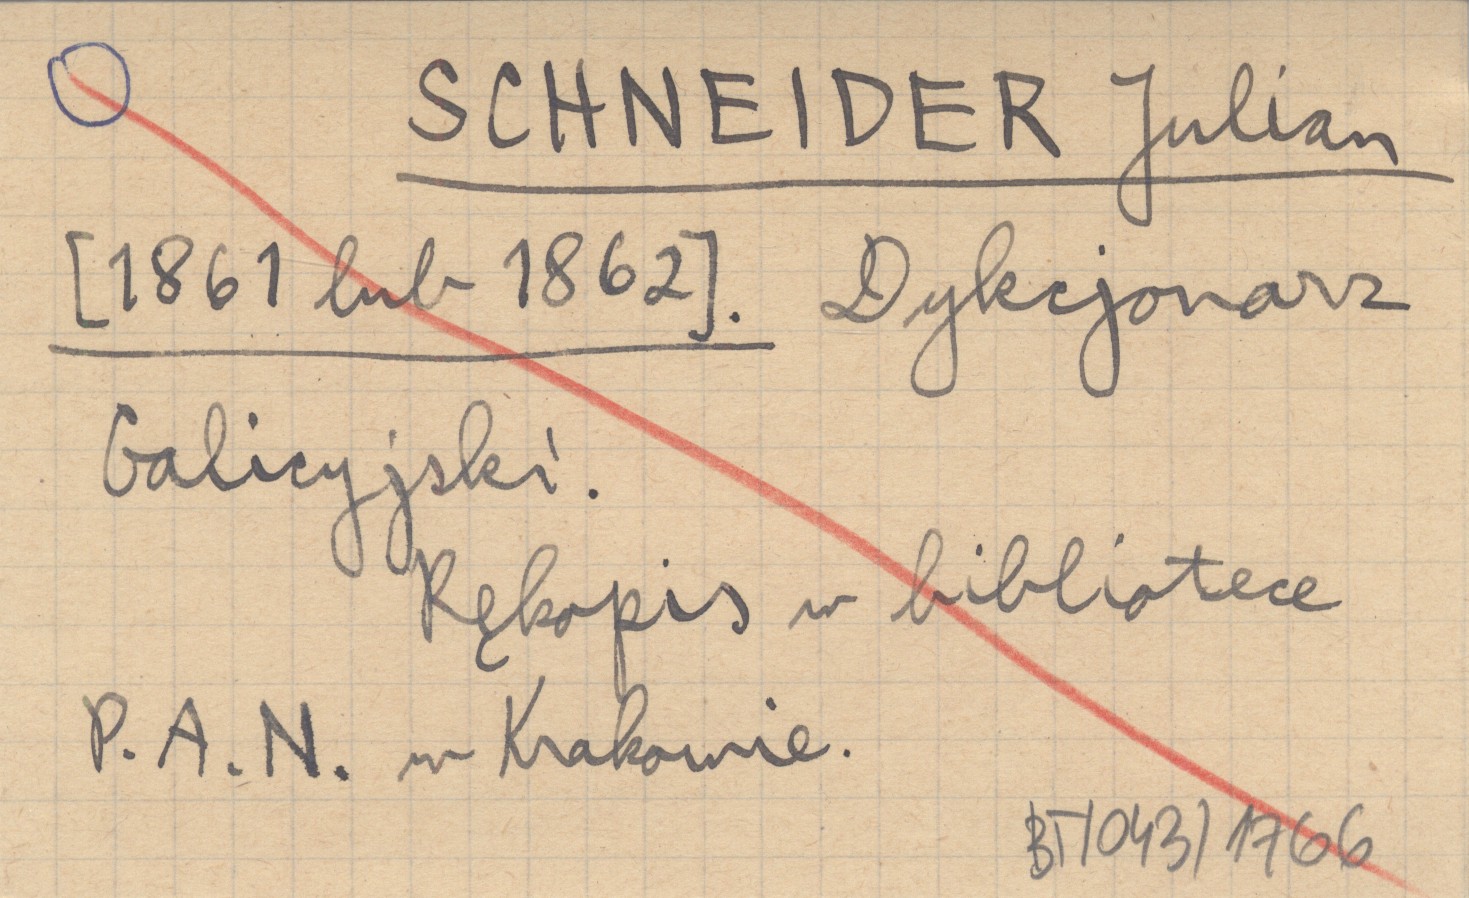 SCHNEIDER Julian
[1861 lub 1862]. Dykcjonarz
Galicyjski.
Rękopis w bibliotece
P.A.N. w Krakowie.
BT/043/1766